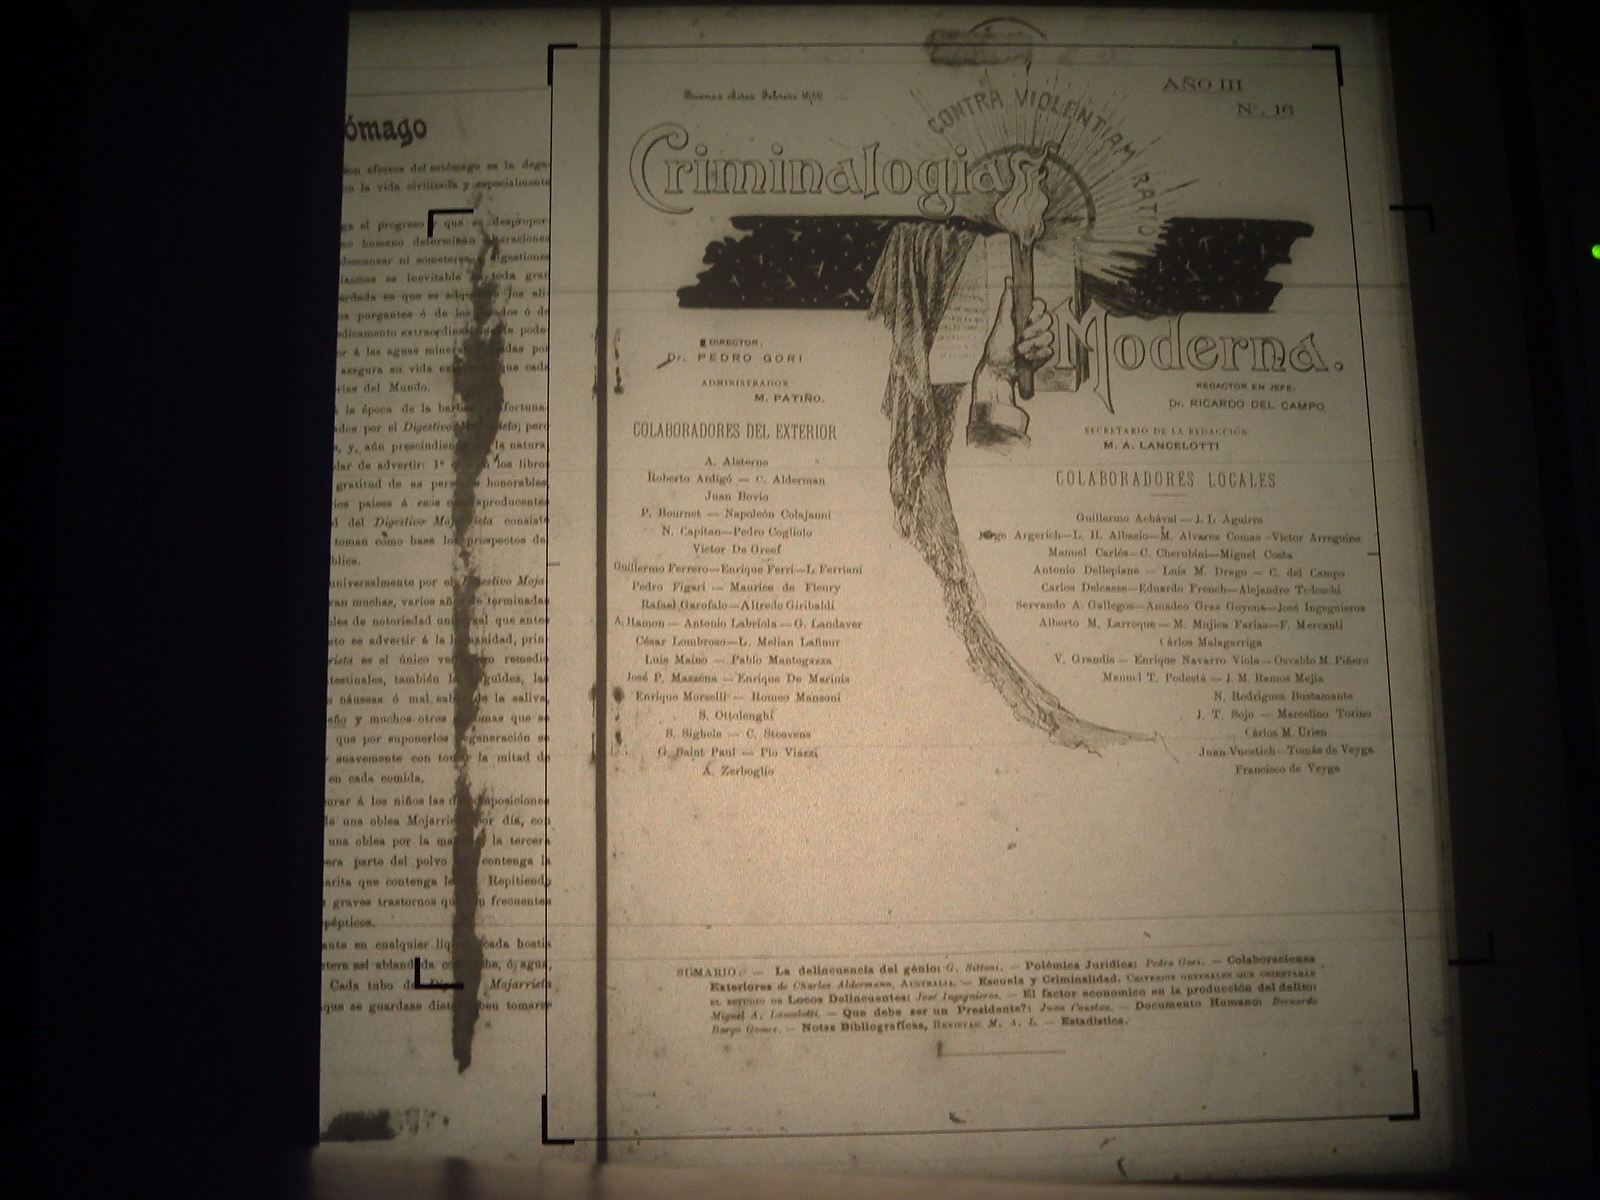 ómago
son efectos del estómago es la dege-
en la vida civilizada y especialmente
ga el progreso y que es despropor-
no humano determinan alteraciones
descansar ni someterse digestiones
iasmas es inevitable en toda gran
ardada en que se los ali-
os purgantes ó de los ó de
dicamento de pode-
or á las aguas por
asegura su vida que cada
rias del Mundo.
á la época de la fortuna-
ados por el Digestivo pero
s, y, aún prescindien la natura
dar de advertir: 1º los libros
gratitud de as honorables
ios países á esos aproducentes
d del Digestivo Mojarrieta consiste
toman cómo base los prospectos de
blica.
universalmente por el Digestivo Moja
ran muchas, varios terminadas
les de notoriedad universal que antes
sto es advertir á la humanidad, prin-
rieta es el único remedio
testinales, también la
náuseas ó mal sabor de la saliva,
eño y muchos otros síntomas que se
que por suponerlos degeneración se
suavemente con tomar la mitad de
en cada comida,
arar á los niños las descomposiciones
de una oblea Mojarrieta por día, con
una oblea por la la tercera
era parte del polvo contenga la
arita que contenga Repitiendo
s graves trastornos que frecuentes
pépticos.
ante en cualquier cada hostia
ntera así ablandada agua,
Cada tubo de Mojarrieta
que se guardase tomarse
Buenos Aires Febrero 1900
AÑO III
Nº. 16
CONTRA VIOLENTIAM RATIO
Criminalogia
Moderna.
DIRECTOR,
Dr. PEDRO GORI
ADMINISTRADOR
M. PATIÑO.
REDACTOR EN JEFE,
Dr. RICARDO DEL CAMPO
SECRETARIO DE LA REDACCIÓN
M. A. LANCELOTTI
COLABORADORES DEL EXTERIOR
A. Alsterno
Roberto Ardigó — C. Alderman
Juan Bovio
P. Bournet — Napoleón Colajanni
N. Capitan—Pedro Cogliolo
Victor De Greef
Guillermo Ferrero—Enrique Ferri—L. Ferriani
Pedro Figari — Maurice de Fleury
Rafael Garofalo—Alfredo Giribaldi
A. Hamon — Antonio Labriola — G. Landaver
César Lombroso—L. Melian Lafinur
Luis Maino — Pablo Mantegazza
José P. Mazzena — Enrique De Marinis
Enrique Morselli — Romeo Manzoni
S. Ottolenghi
S. Sighele — C. Steevens
G. Saint Paul — Pio Viazzi
A. Zerboglio
COLABORADORES LOCALES
Guillermo Achával — J. L. Aguirre
Argerich—L. H. Albasio—M. Alvarez Comas—Victor Arreguine
Manuel Carlés—C. Cherubini—Miguel Costa
Antonio Dellepiane — Luis M. Drago — C. del Campo
Carlos Delcasse—Eduardo French—Alejandro Tedeschi
Servando A. Gallegos—Amadeo Gras Goyena—José Ingegnieros
Alberto M. Larroque — M. Mujica Farías—F. Mercanti
Cárlos Malagarriga
V. Grandis — Enrique Navarro Viola—Osvaldo M. Piñero
Manuel T. Podestá — J. M. Ramos Mejía
N. Rodriguez Bustamante
J. T. Sojo — Marcelino Torino
Cárlos M. Urien
Juan Vucetich—Tomás de Veyga
Francisco de Veyga
SUMARIO: — La delincuencia del génio: G. Sittoni. — Polémica Jurídica: Pedro Gori. — Colaboraciones
Exteriores de Charles Aldermann, AUSTRALIA. — Escuela y Criminalidad. CRITERIOS GENERALES QUE ORIENTARÁN
EL ESTUDIO DE Locos Delincuentes: José Ingegnieros. — El factor económico en la producción del delito:
Miguel A. Lancelotti. — Que debe ser un Presidente?: Juan Coustau. — Documento Humano: Bernardo
Gomez. — Notas Bibliográficas, REVISTAS: M. A. L. — Estadística.